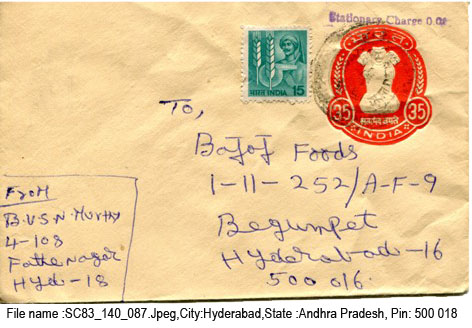 Stationary Charge 0.02
भारत INDIA 15
35 35
सत्यमेव जयते
INDIA
To,
Bajoj Foods
1-11-252/A-F-9
Begumpet
Hyderabad-16
500 016.
From
B.V.S.N. Murthy
4-108
Fathenagar
Hyd-18
File name :SC83_140_087.Jpeg,City:Hyderabad,State :Andhra Pradesh, Pin: 500 018